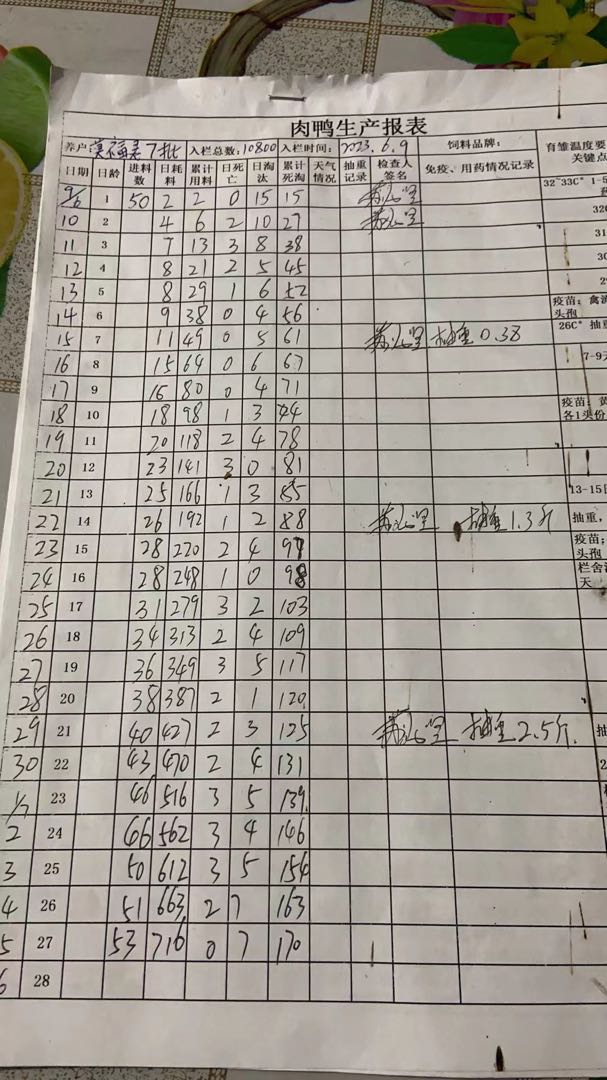 肉鸭生产报表
养户: 福 7批 入栏总数:10800 入栏时间:2023.6.9 饲料品牌: 育雏温度要 关键点
日期 日龄 进料数 日耗料 累计用料 日死亡 日淘汰 累计死淘 天气情况 抽重记录 检查人签名 免疫、用药情况记录
9/6 1 50 2 2 0 15 15 32~33C° 1-5
10 2 4 6 2 10 27 32
11 3 7 13 3 8 38 31
12 4 8 21 2 5 45 30
13 5 8 29 1 6 52 2
14 6 9 38 0 4 56 疫苗:禽流 头孢
15 7 11 49 0 5 61 抽重0.38 26C° 抽重
16 8 15 64 0 6 67 7-9天
17 9 16 80 0 4 71
18 10 18 98 1 3 74 疫苗:黄 各1头份
19 11 20 118 2 4 78
20 12 23 141 3 0 81
21 13 25 166 1 3 85 13-15日
22 14 26 192 1 2 88 抽重1.3斤 抽重,
23 15 28 220 2 4 97 疫苗; 头孢
24 16 28 248 1 0 98 栏舍 天
25 17 31 279 3 2 103
26 18 34 313 2 4 109
27 19 36 349 3 5 117
28 20 38 387 2 1 120
29 21 40 427 2 3 125 抽重2.5斤. 抽
30 22 43 470 2 4 131 2
1/7 23 46 516 3 5 139
2 24 46 562 3 4 146
3 25 50 612 3 5 154
4 26 51 663 2 7 163
5 27 53 716 0 7 170
6 28